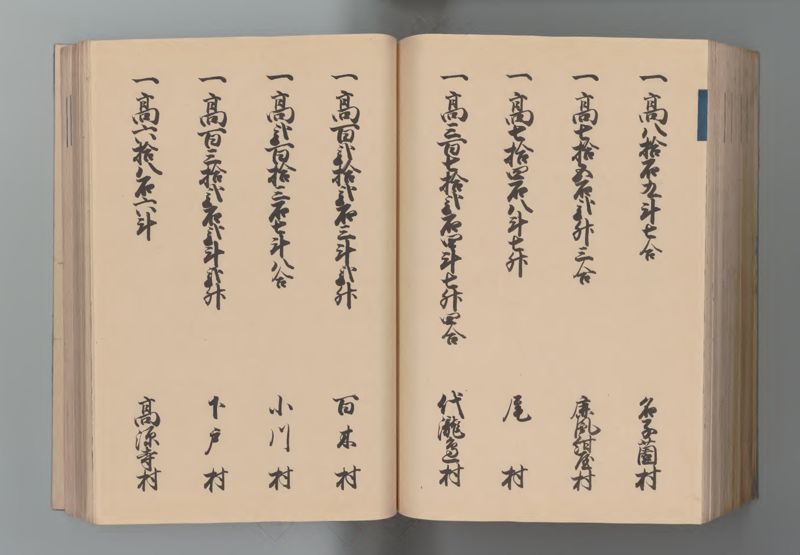 一高八拾石九斗七合 名子薗村
一高七拾五石弐升三合 村
一高七拾四石八斗七升 尾村
一高三百七拾弐石四斗七升四合 代瀧邉村
一高百弐拾弐石三斗弐升 百木村
一高弐百拾三石七斗八合 小川村
一高百三拾弐石弐斗弐升 下戸村
一高六拾八石六斗 高源寺村